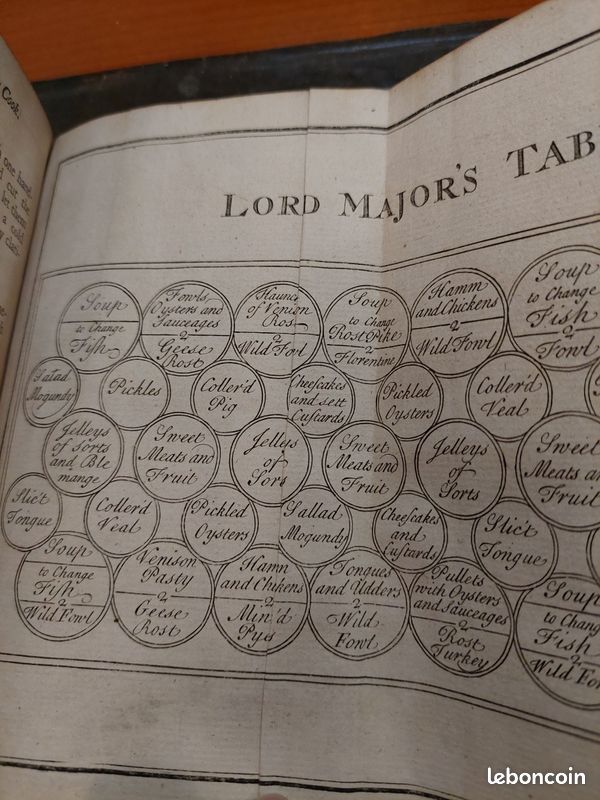 Cook.
one hand.
cut the
let them
a cold
LORD MAJOR'S TAB
Soup
to Change
Fish
Fowls,
Oysters and
Sauceages
2
Geese
Rost
Haunc
of Venison
Ros
2
Wild Fowl
Soup
to Change
Rost Pike
2
Florentine
Hamm
and Chickens
2
Wild Fowl
Soup
to Change
Fish
2
Fowl
Salad
Mogundy
Pickles
Coller'd
Pig
Cheescakes
and sett
Custards
Pickled
Oysters
Coller'd
Veal
Jelleys
of Sorts
and Ble
mange
Sweet
Meats and
Fruit
Jellys
of
Sorts
Sweet
Meats and
Fruit
Jelleys
of
Sorts
Sweet
Meats and
Fruit
Slic't
Tongue
Coller'd
Veal
Pickled
Oysters
Sallad
Mogundy
Cheescakes
and
Custards
Slic't
Tongue
Soup
to Change
Fish
2
Wild Fowl
Venison
Pasty
2
Geese
Rost
Hamn
and Chikens
2
Min'd
Pys
Tongues
and Udders
2
Wild
Fowl
Pullets
with Oysters
and Sauceages
2
Rost
Turkey
Soup
to Chang
Fish
2
Wild Fo
leboncoin